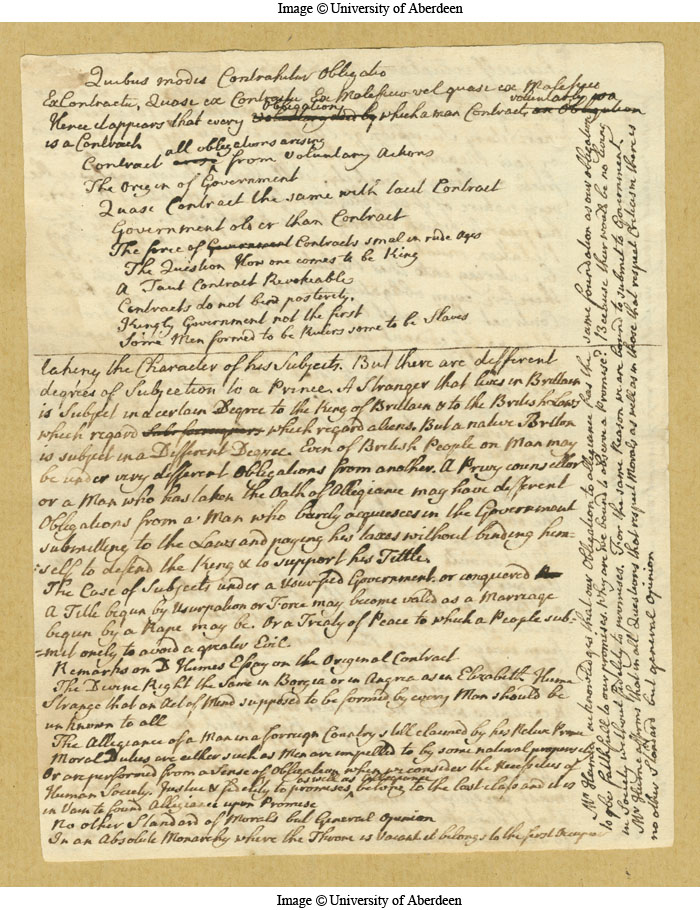 Image © University of Aberdeen
Quibus modis Contrahitur Obligatio
ExContractu, Quase ex Contractu Ex Malefico vel quase ex Malefico
Hence it appears that every Obligation which a man Contracts voluntarly is a
is a Contract
Contract all obligations arising from Voluntary Actions
The Origin of Government
Quase Contract the same with tacit Contract
Government older than Contract
The force of Government Contracts smal in rude Ages
The Question How one comes to be King
A Tacit Contract Revokeable
Contracts do not bind posterity.
Kingly Government not the first
Some Men formed to be Rulers some to be Slaves
taking the Character of his Subjects. But there are different
degrees of Subjection to a Prince. A Stranger that lives in Brittain
is Subject in a certain Degree to the King of Brittain & to the British Laws
which regard which regard aliens. But a native Britton
is subject in a Different Degree. Even of British People on Man may
be under very different Obligations from another. A Privy counsellor
or a Man who has taken the Oath of Allegiance may have different
Obligations from a Man who barely acquiesces in the Government
submitting to the Laws and paying his taxes without binding him=
=self to defend the King & to support his Tittle.
The Case of Subjects under a Usurped Government. or conquered
A Title begun by Usurpation or Force may become valid as a Marriage
begun by a Rape may be. Or a Treaty of Peace to which a People sub-
=met onely to avoid a greater Evil.
Remarks on D Humes Essay on the Original Contract
The Divine Right the Same in Borgia or in Angrea as in Elizabeth Hume
Strange that an Act of Mind supposed to be formed by every Man should be
unknown to all
The Allegiance of a Man in a forreign Country still claimed by his Native Prince
Moral Duties are either such as Men are impelled to by some natural propensity
Or are performed from a Sense of Obligation when we consider the Necessities of
Human Society. Justice & fidelity to promises, as well as Allegiance belong to the last class and it is
in Vain to found Allegiance upon Promise
No other Standard of Morals but General Opinion
In an Absolute Monarchy where the Throne is Vacant it belongs to the first Occupant
Mr Hume acknowledges that our Obligation to allegiance has the same foundation as our obligation
to be faithfull to our promises. Why are we bound to observe a Promise? Because there would be no living
in Society without fidelity to promises. For the same Reason we are bound to submit to Government
Mr Hume affirms that in all Questions that respect Morals as well as in those that respect Criticism there is
no other Standard but general Opinion
Image © University of Aberdeen